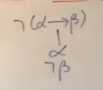 ¬(α→β)
α
¬β